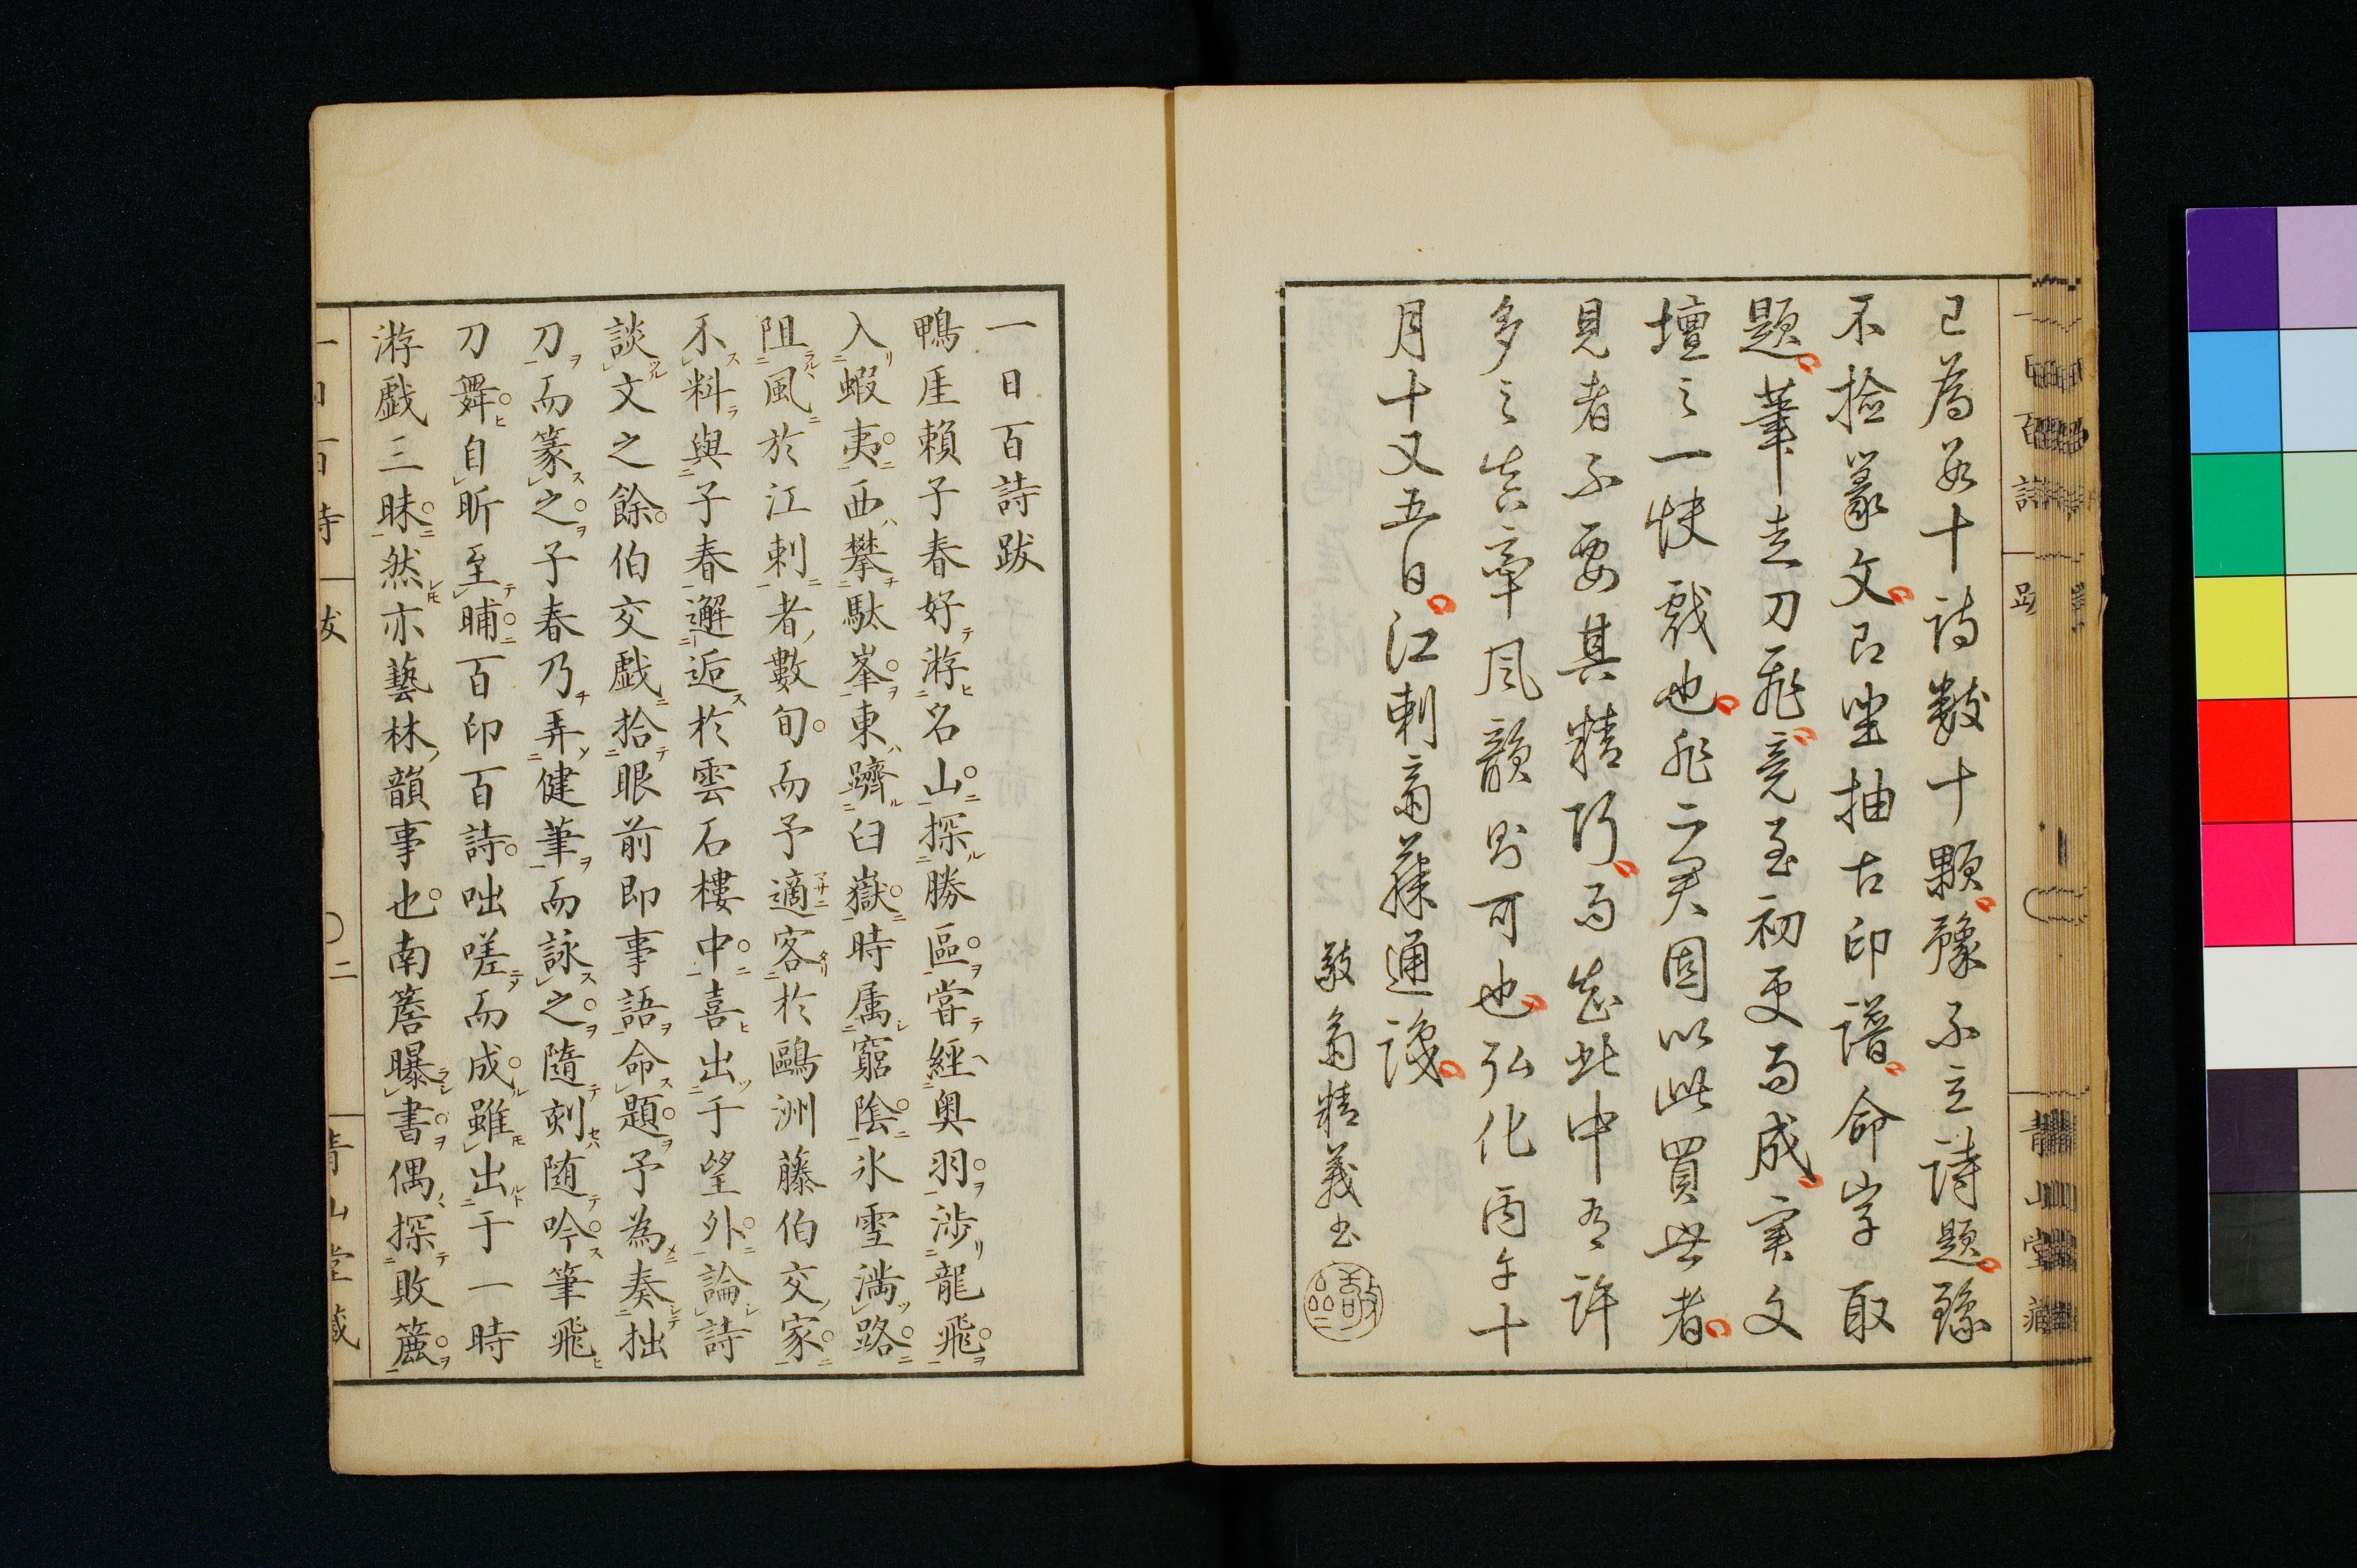 已為数十詩数十顆豫不立詩題豫
不撿篆文只坐抽古印譜命字取
題筆走刀飛竟至初更而成実文
壇之一快戯也非二君固以此買世者
見者不要其精巧而知此中有許
多之真率風韻則可也弘化丙午十
月十又五日江刺翁藤通譏
敬翁精義書
一日百詩跋
鴨厓頼子春好游名山探勝區嘗經奥羽渉龍飛
入蝦夷西攀駄峯東躋臼嶽時属窮陰氷雪満路
阻風於江刺者數旬而予適客於鷗洲藤伯交家
不料與子春邂逅於雲石樓中喜出于望外論詩
談文之餘伯交戯拾眼前即事語命題予為奏拙
刀而篆之子春乃弄健筆而詠之隨刻随吟筆飛
刀舞自昕至晡百印百詩咄嗟而成雖出于一時
游戯三昧然亦藝林韻事也南簷曝書偶探敗簏
一日百詩
跋
二
青山堂藏